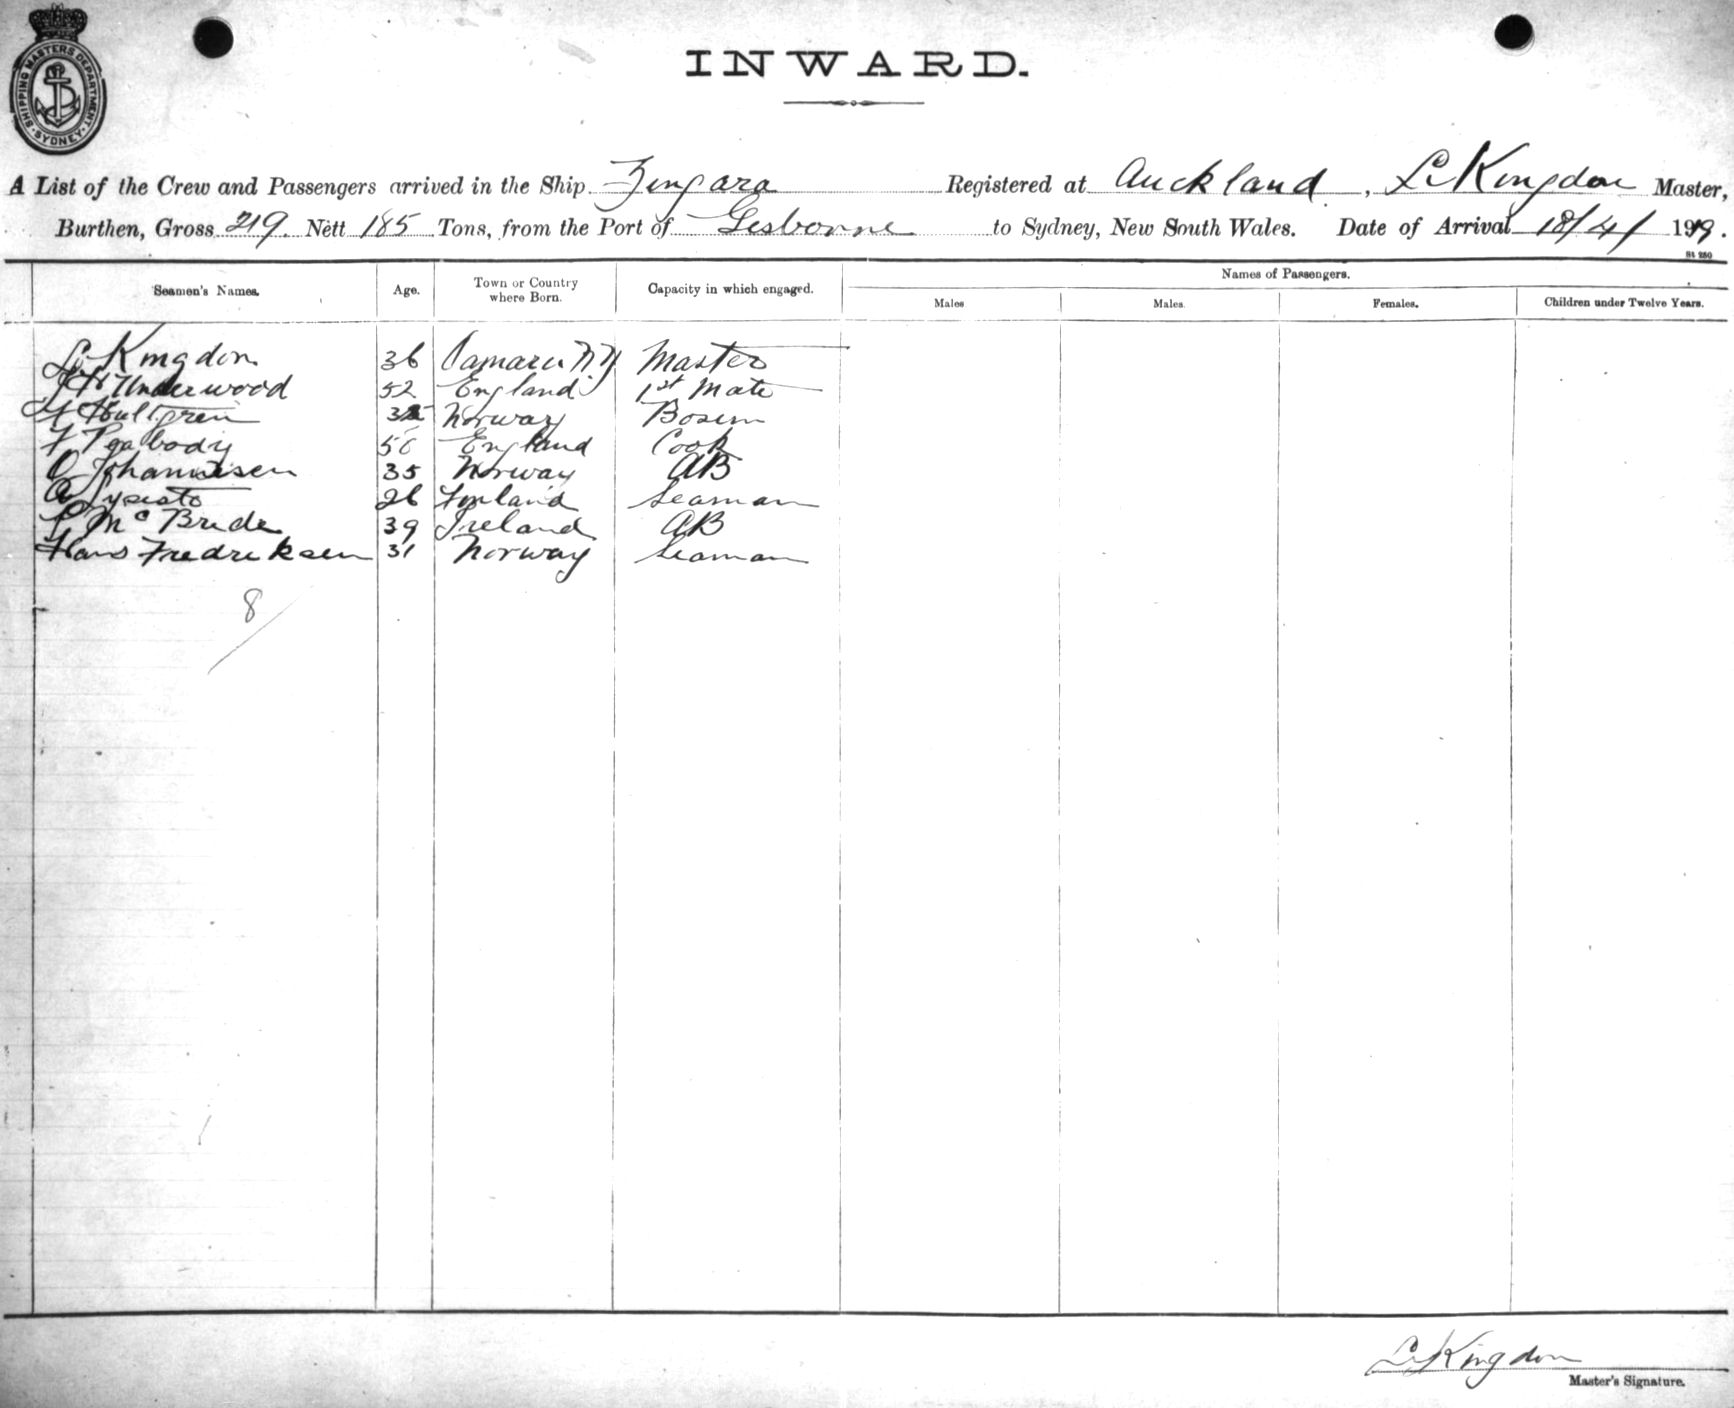 SHIPPING MASTERS DEPARTMENT
SYDNEY
INWARD.
A List of the Crew and Passengers arrived in the Ship Zingara Registered at Auckland, L. Kingdon Master,
Burthen, Gross 219. Nett 185 Tons, from the Port of Gisborne to Sydney, New South Wales. Date of Arrival 18/4/ 1919.
St 280
Names of Passengers.
Seamen's Names. Age. Town or Country where Born. Capacity in which engaged. Males Males. Females. Children under Twelve Years.
L. Kingdon 36 Oamaru NZ Master
Underwood 52 England 1st Mate
Hultgren Norway Bosun
F Peabody 50 England Cook
O Johannesen 35 Norway AB
A 26 Finland Seaman
McBride 39 Ireland AB
Hans Fredriksen 31 Norway Seaman
8
L. Kingdon
Master's Signature.